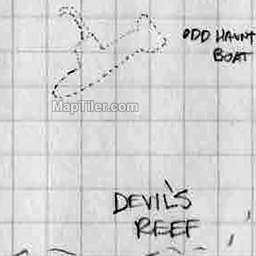 ODD HAUNT
BOAT
MapTiler.com
DEVIL'S
REEF